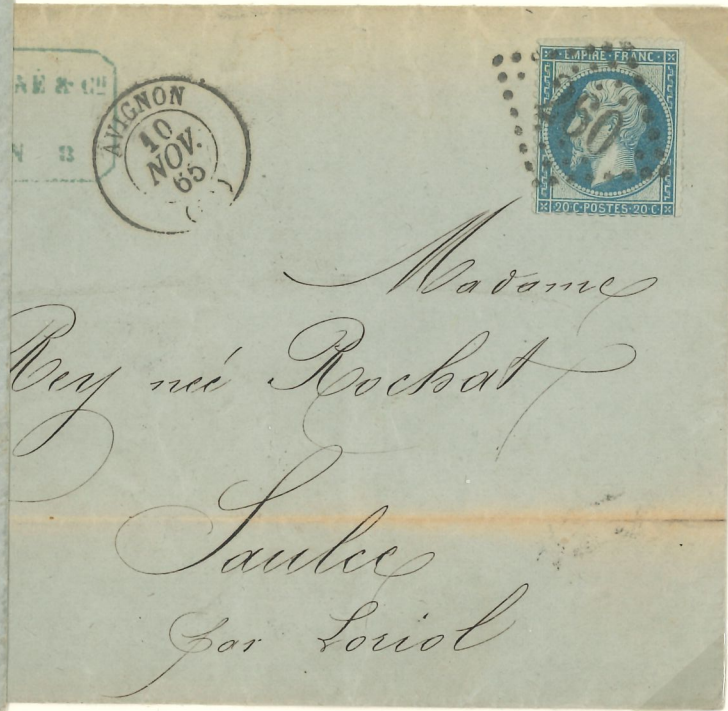 & Cie
N 8
AVIGNON
10
NOV.
65
EMPIRE FRANC
260
20 C POSTES 20 C
Madame
Rey neé Rochat
Saulce
par Loriol